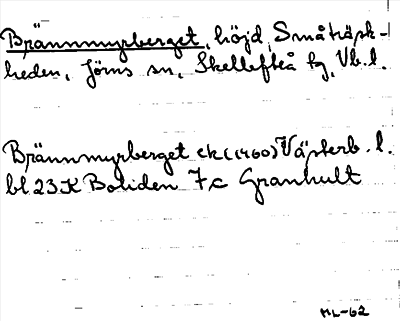 Brännmyrberget, höjd, Småträsk-
heden, Jörns sn, Skellefteå tg, Vb. l.
Brännmyrberget ek (1960) Västerb. l.
bl 23K Boliden 7c Granhult
ML-62